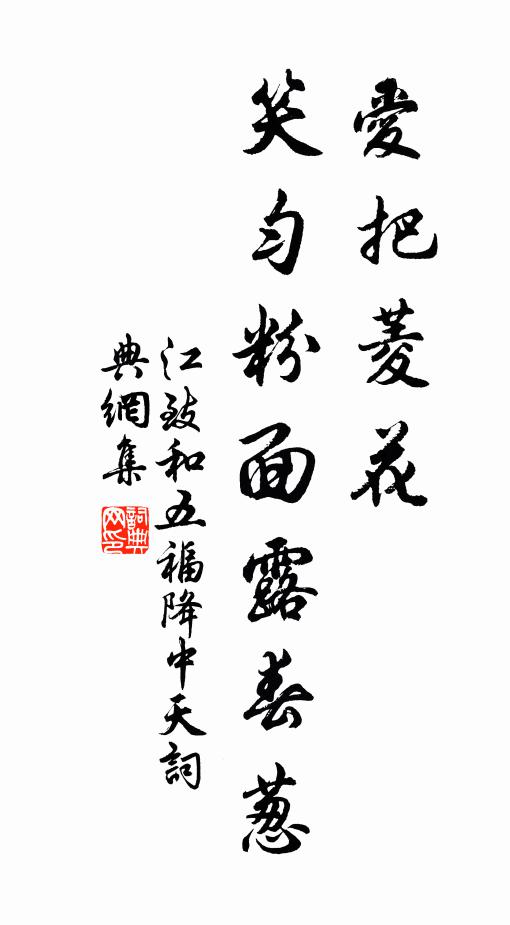 愛把菱花
笑勻粉面露春蔥
江致和五福降中天詞
典網集
詞典網印